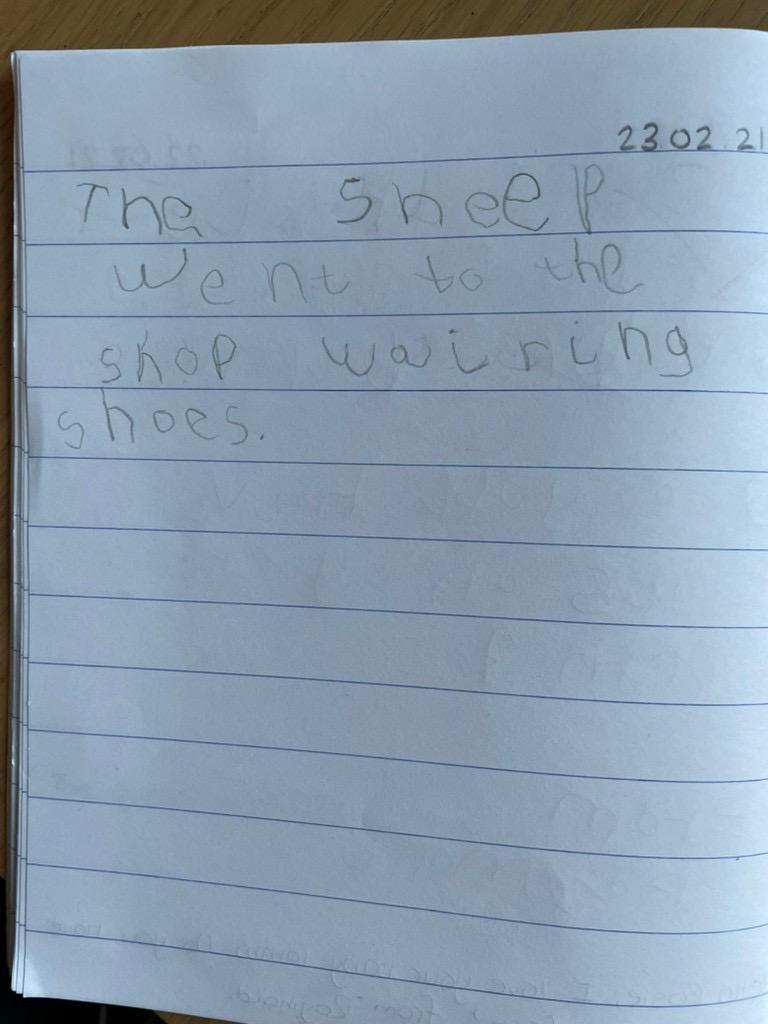 23.02.21
The Sheep
went to the
shop wairing
shoes.